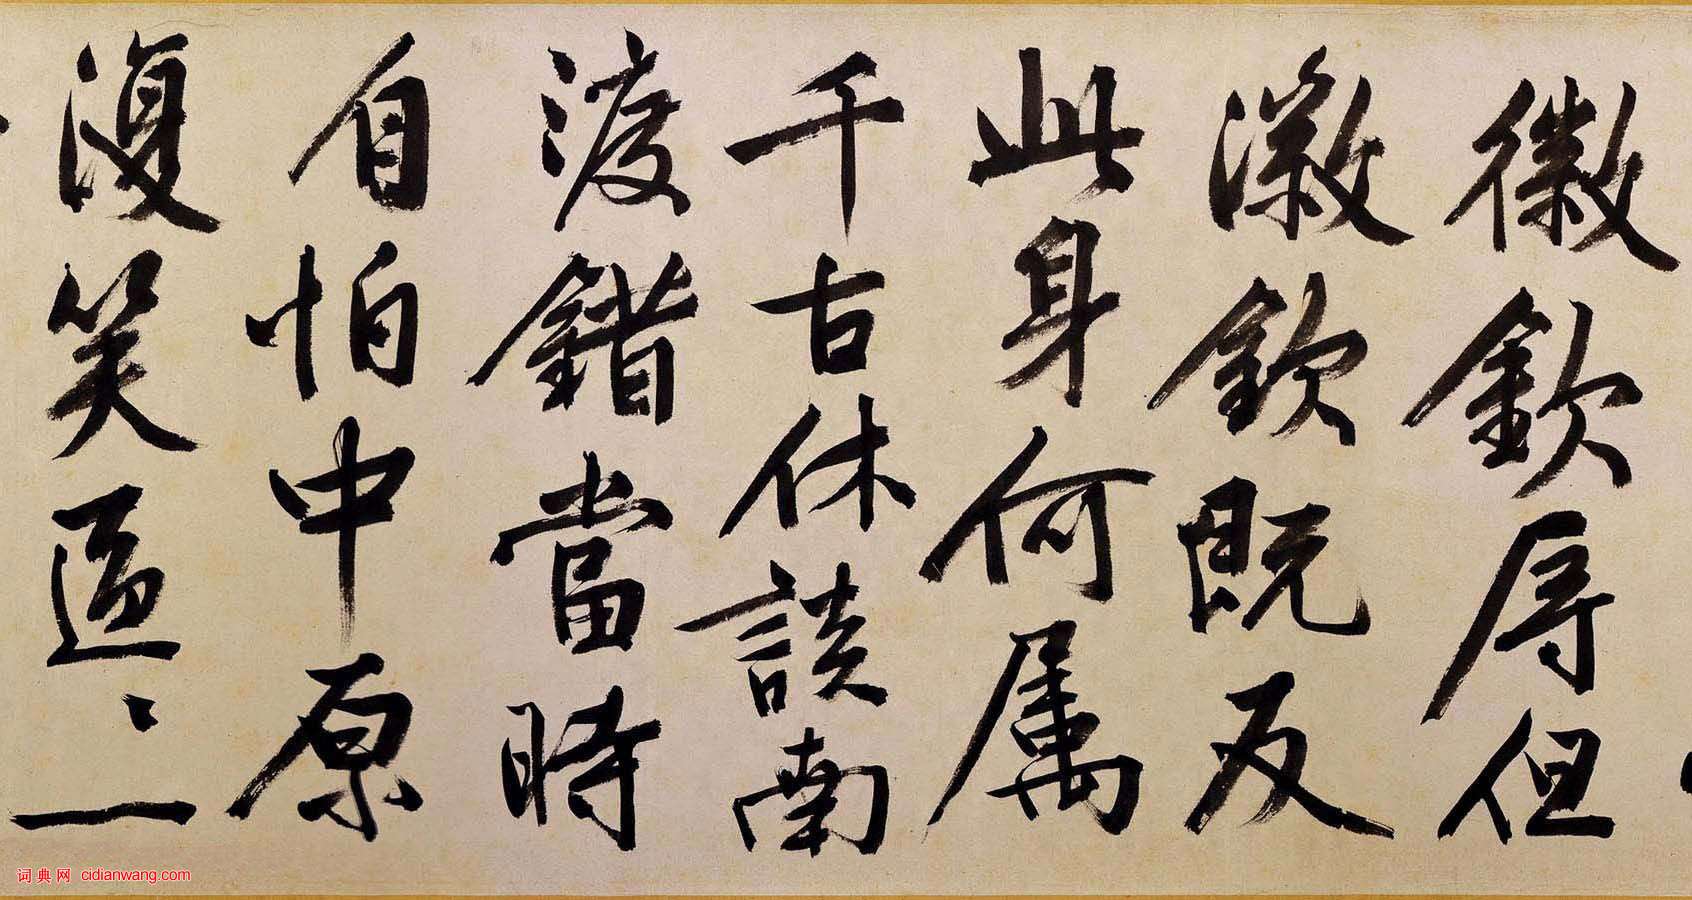 徽欽辱但
徽欽既反
此身何屬
千古休談南
渡錯當時
自怕中原
復笑區〻一
词典网 cidianwang.com